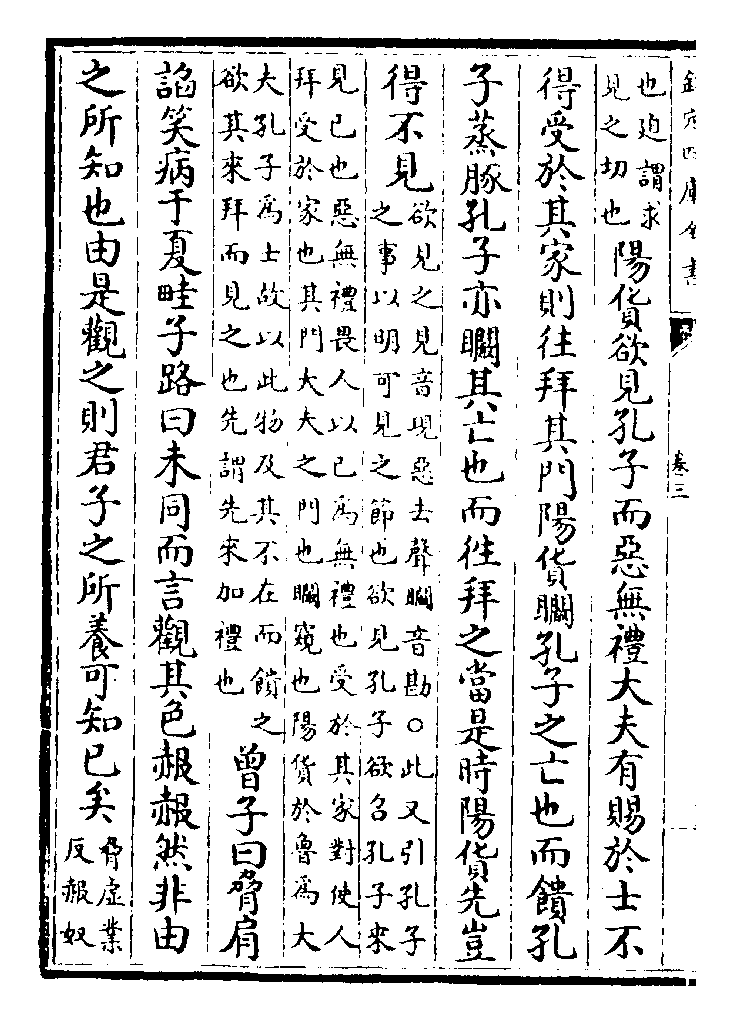 欽定四庫全書
卷三
也迫謂求見之切也陽貨欲見孔子而惡無禮大夫有賜於士不
得受於其家則往拜其門陽貨矙孔子之亡也而饋孔
子蒸豚孔子亦矙其亡也而往拜之當是時陽貨先豈
得不見欲見之見音現惡去聲矙音勘○此又引孔子之事以明可見之節也欲見孔子欲召孔子來
見已也惡無禮畏人以已為無禮也受於其家對使人拜受於家也其門大夫之門也矙窺也陽貨於魯為大
夫孔子為士故以此物及其不在而饋之欲其來拜而見之也先謂先來加禮也曾子曰脅肩
諂笑病于夏畦子路曰未同而言觀其色赧赧然非由
之所知也由是觀之則君子之所養可知已矣脅虛業反赧奴